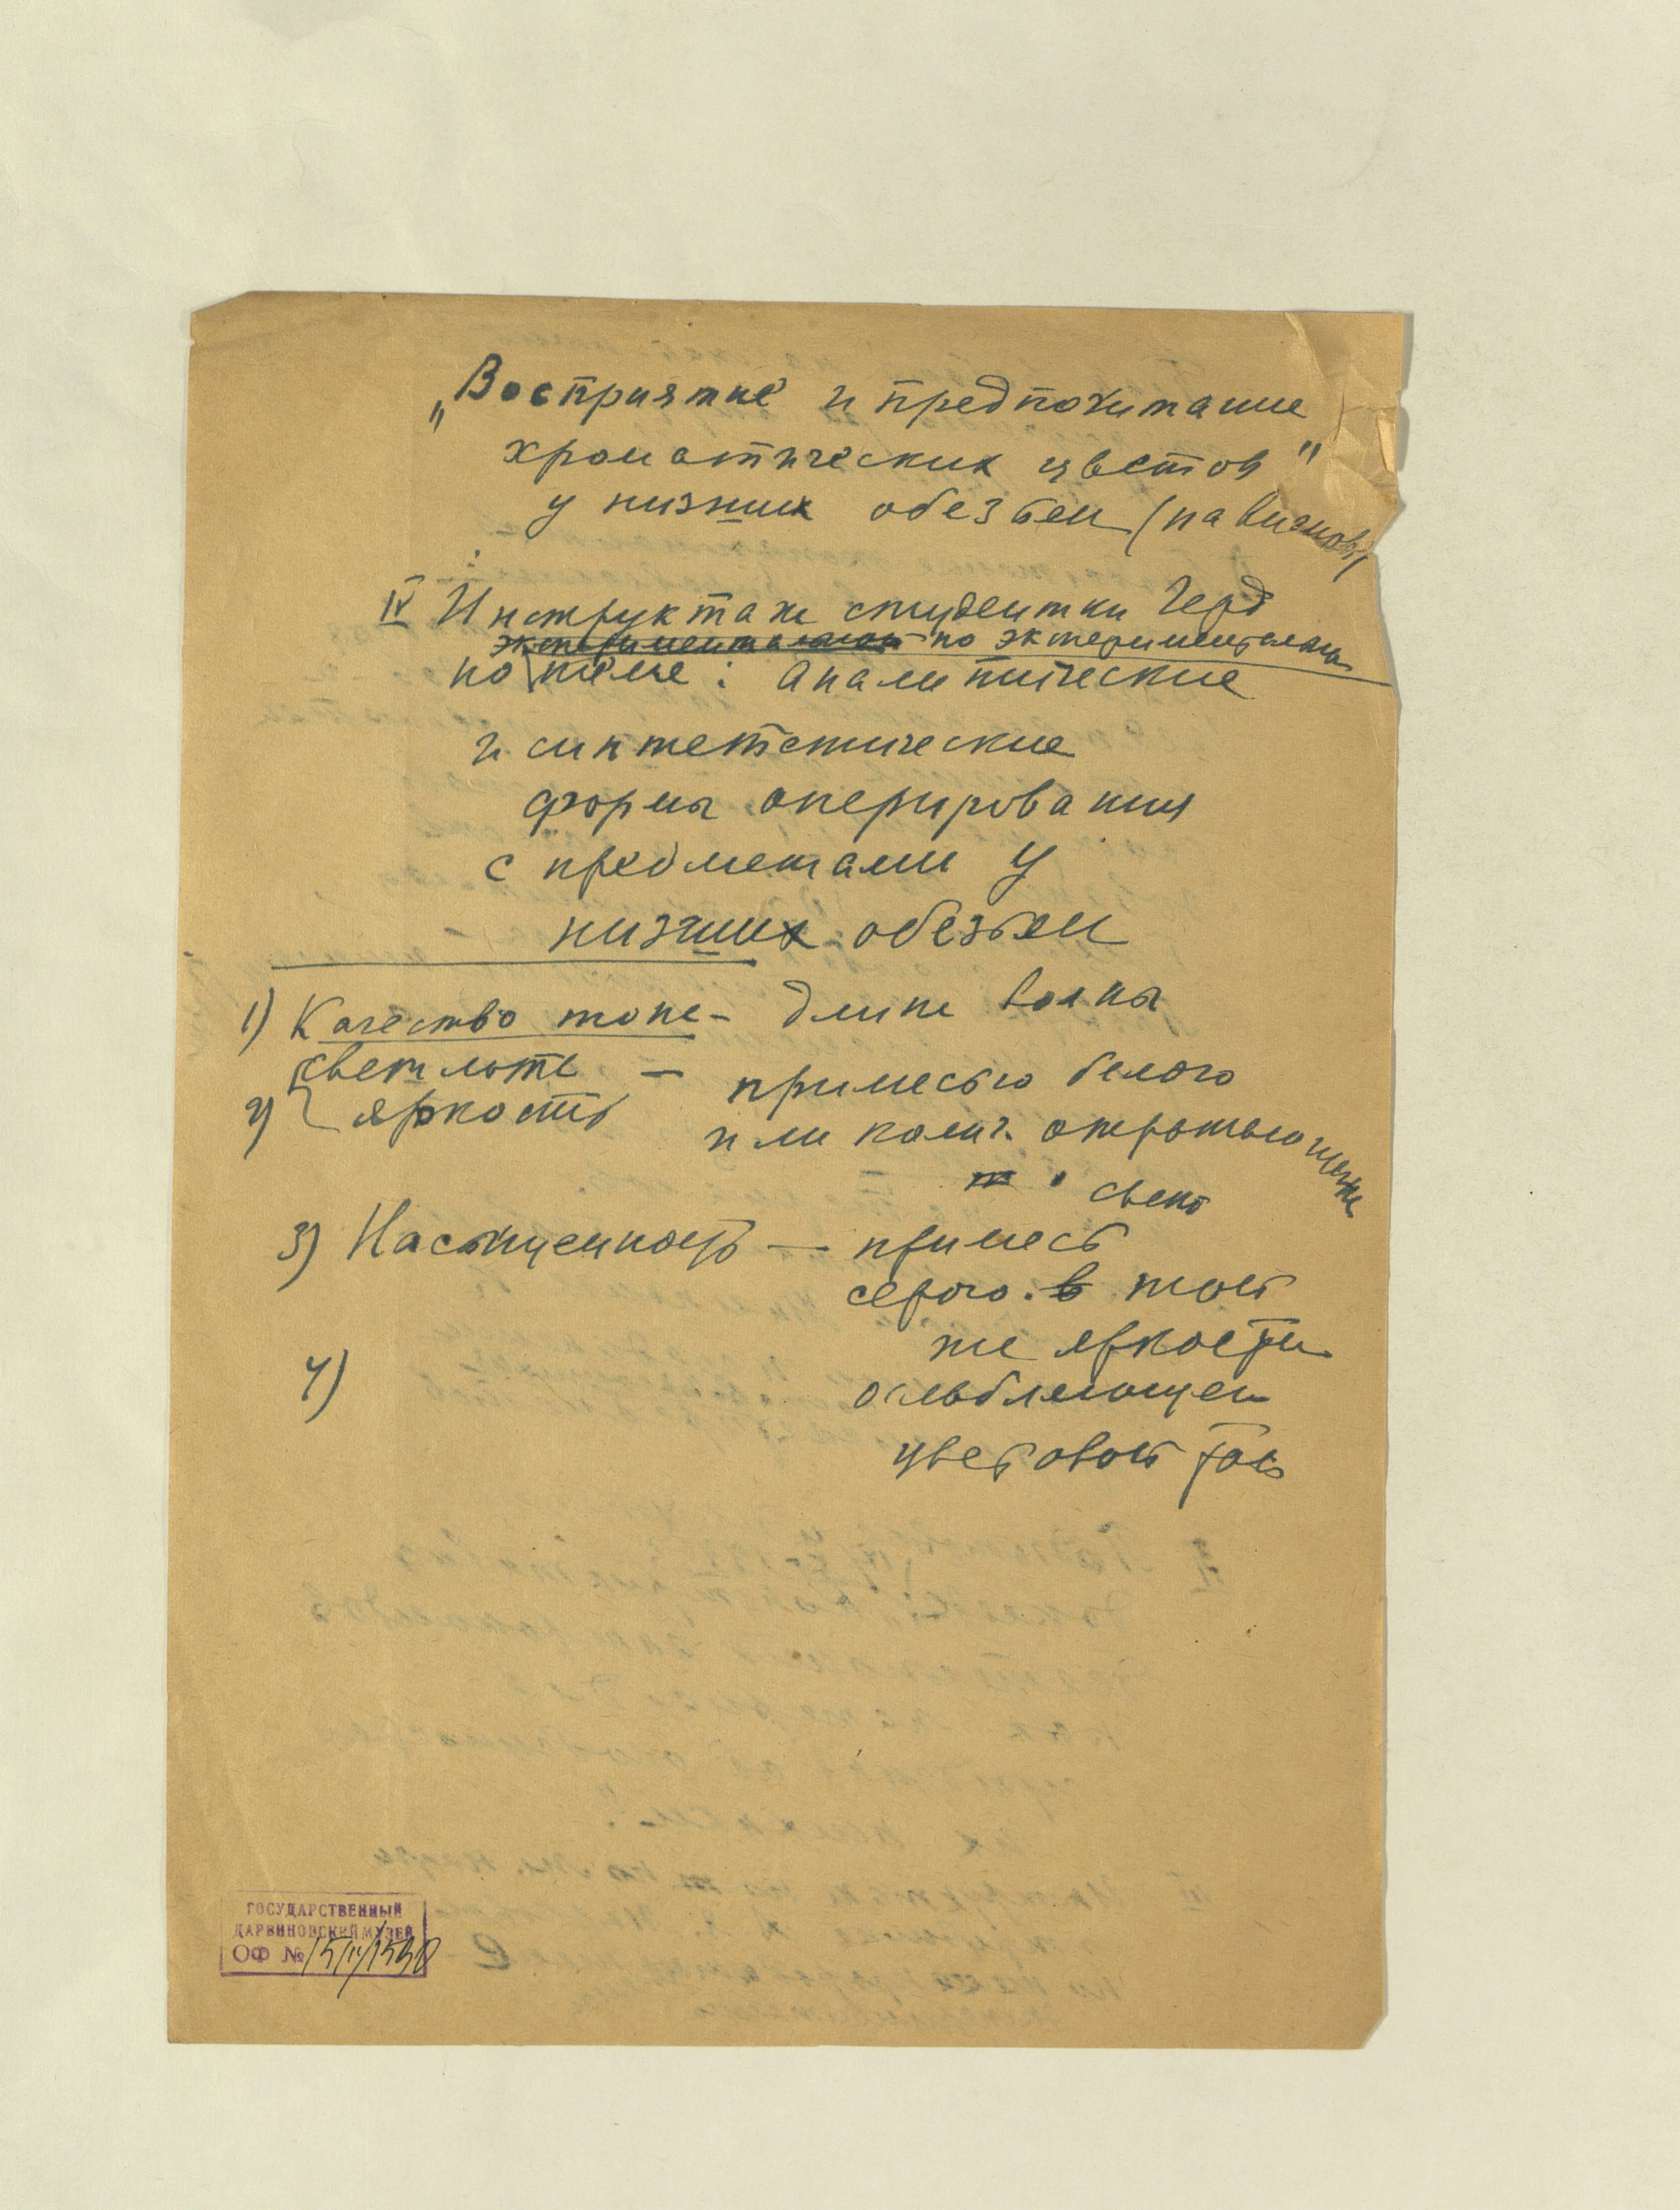 „Восприятие и предпочитание
хроматических цветов"
у низших обезьян (павианов)
IV Инструктаж студентки Герд
по экспериментальн
по теме: Аналитические
и синтетстические
формы оперирования
с предметами у
низших обезьян
1) Качество тона - длина волны
светлота — примесью белого
2) яркость
или колич. отрытающего
света
3) Насыщенность — примесь
серого. в той
же яркости
ослабляющей
цветовой тон
4)
ГОСУДАРСТВЕННЫЙ
ДАРВИНОВСКИЙ МУЗЕЙ
ОФ №